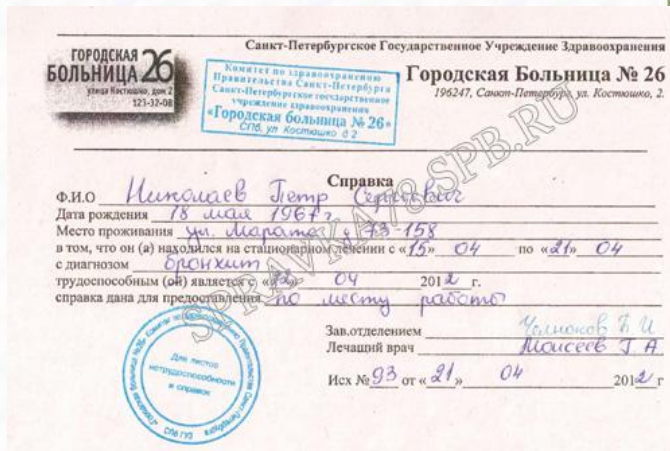 ГОРОДСКАЯ
БОЛЬНИЦА 26
улица Костюшко, дом 2
123-32-08
Комитет по здравоохранению
Правительства Санкт-Петербурга
Санкт-Петербургское государственное
учреждение здравоохранения
«Городская больница № 26»
СПб, ул Костюшко д 2
Санкт-Петербургское Государственное Учреждение Здравоохранения
Городская Больница № 26
196247, Санкт-Петербург, ул. Костюшко, 2.
SPRAVKA78.SPB.RU
Справка
Ф.И.О Николаев Петр Сергеевич
Дата рождения 18 мая 1967 г.
Место проживания ул. Марата д 73-158
в том, что он (а) находился на стационарном лечении с «15» 04 по «21» 04
с диагнозом бронхит
трудоспособным (ой) является с «22» 04 2012 г.
справка дана для предоставления по месту работы
Зав.отделением Челноков Б. И
Лечащий врач Моисеев Г. А
Исх № 93 от «21» 04 2012 г
Для листов
нетрудоспособности
и справок